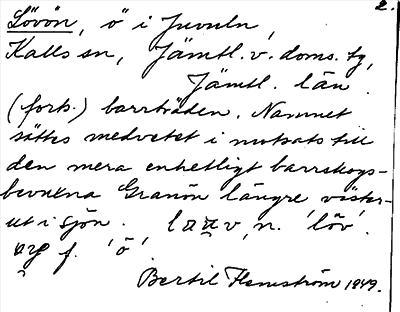 2.
Lövön, ö i Juvuln,
Kalls sn, Jämtl. v. doms. tg,
Jämtl. län.
(forts.) barrträden. Namnet
sättes medvetet i motsats till
den mera enhetligt barrskogs-
bevuxna Granön längre väster-
ut i sjön. n. 'löv'.
f. 'ö'
Bertil Flemström 1949.